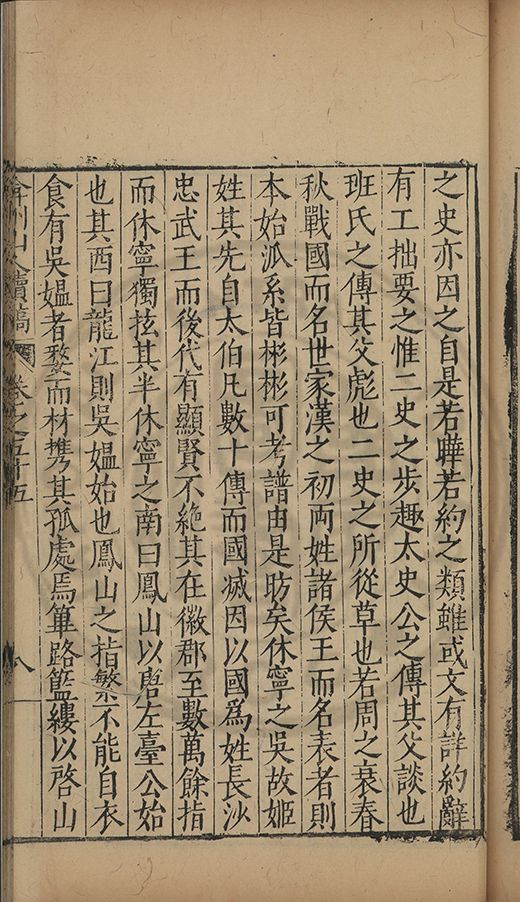 之史亦因之自是若曄若約之類雖或文有詳約辭
有工拙要之惟二史之步趣太史公之傳其父談也
班氏之傳其父彪也二史之所從草也若周之衰春
秋戰國而名世家漢之初兩姓諸侯王而名表者則
本始泒系皆彬彬可考譜由是昉矣休寧之吳故姬
姓其先自太伯凡數十傳而國滅因以國爲姓長沙
忠武王而後代有顯賢不絶其在徽郡至數萬餘指
而休寧獨㧓其半休寧之南曰鳳山以唐左臺公始
也其西曰龍江則吳媼始也鳳山之指繁不能自衣
食有吳媼者嫠而材携其孤處焉篳路籃縷以啓山
弇州山人續稿 卷之五十五 八